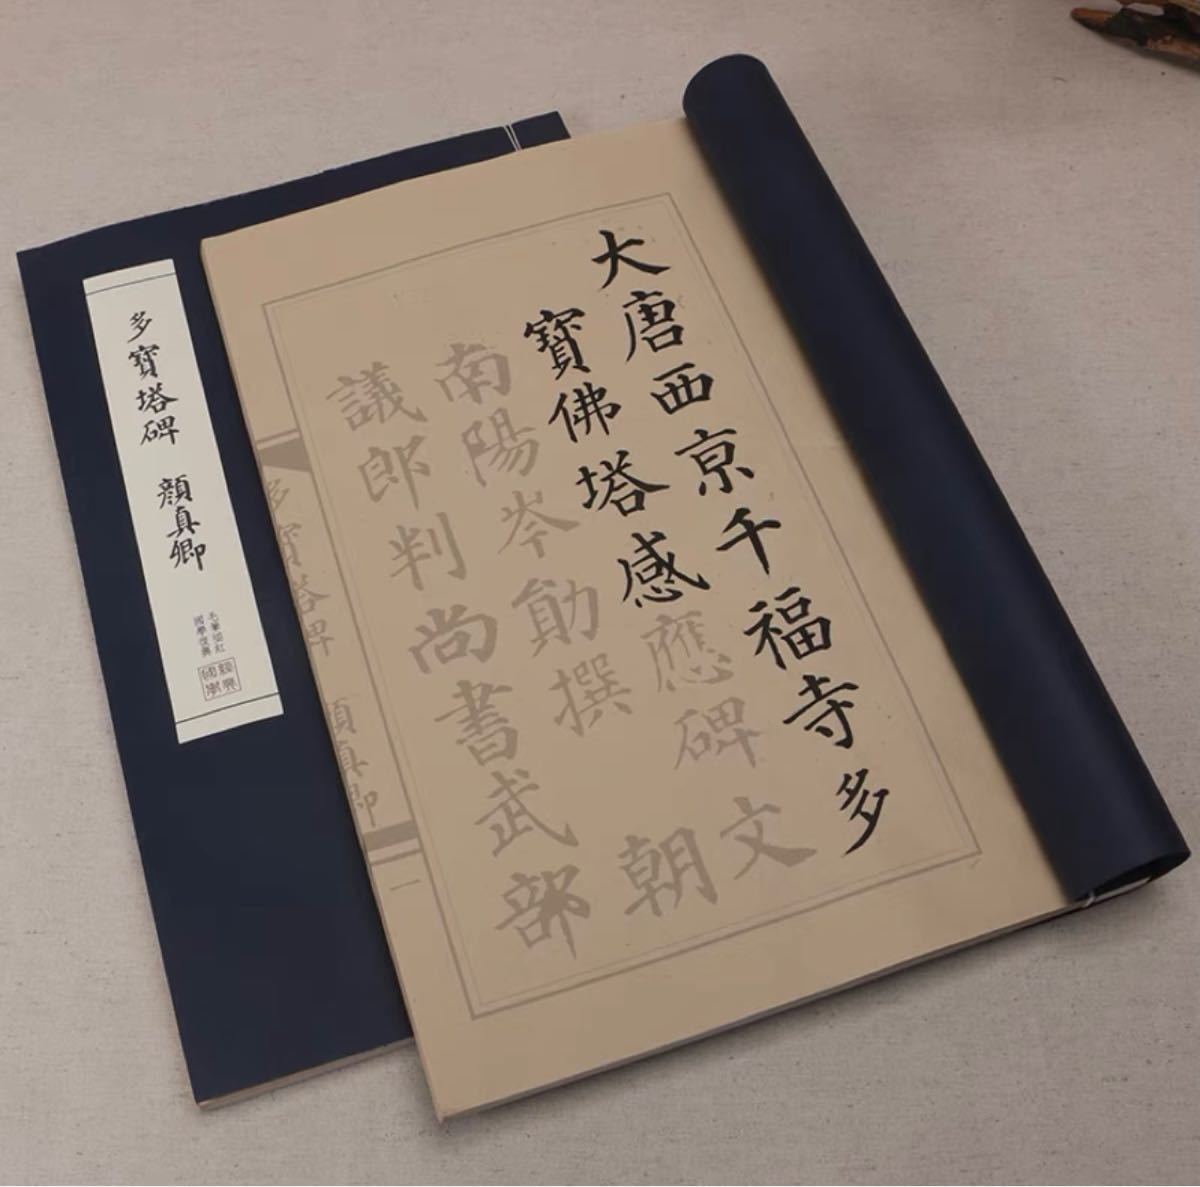 大唐西京千福寺多
寶佛塔感應碑文
南陽岑勛撰
朝
議郎判尚書武部
多寶塔碑 顏真卿
一
多寶塔碑 顏真卿
毛筆描紅
國學復興